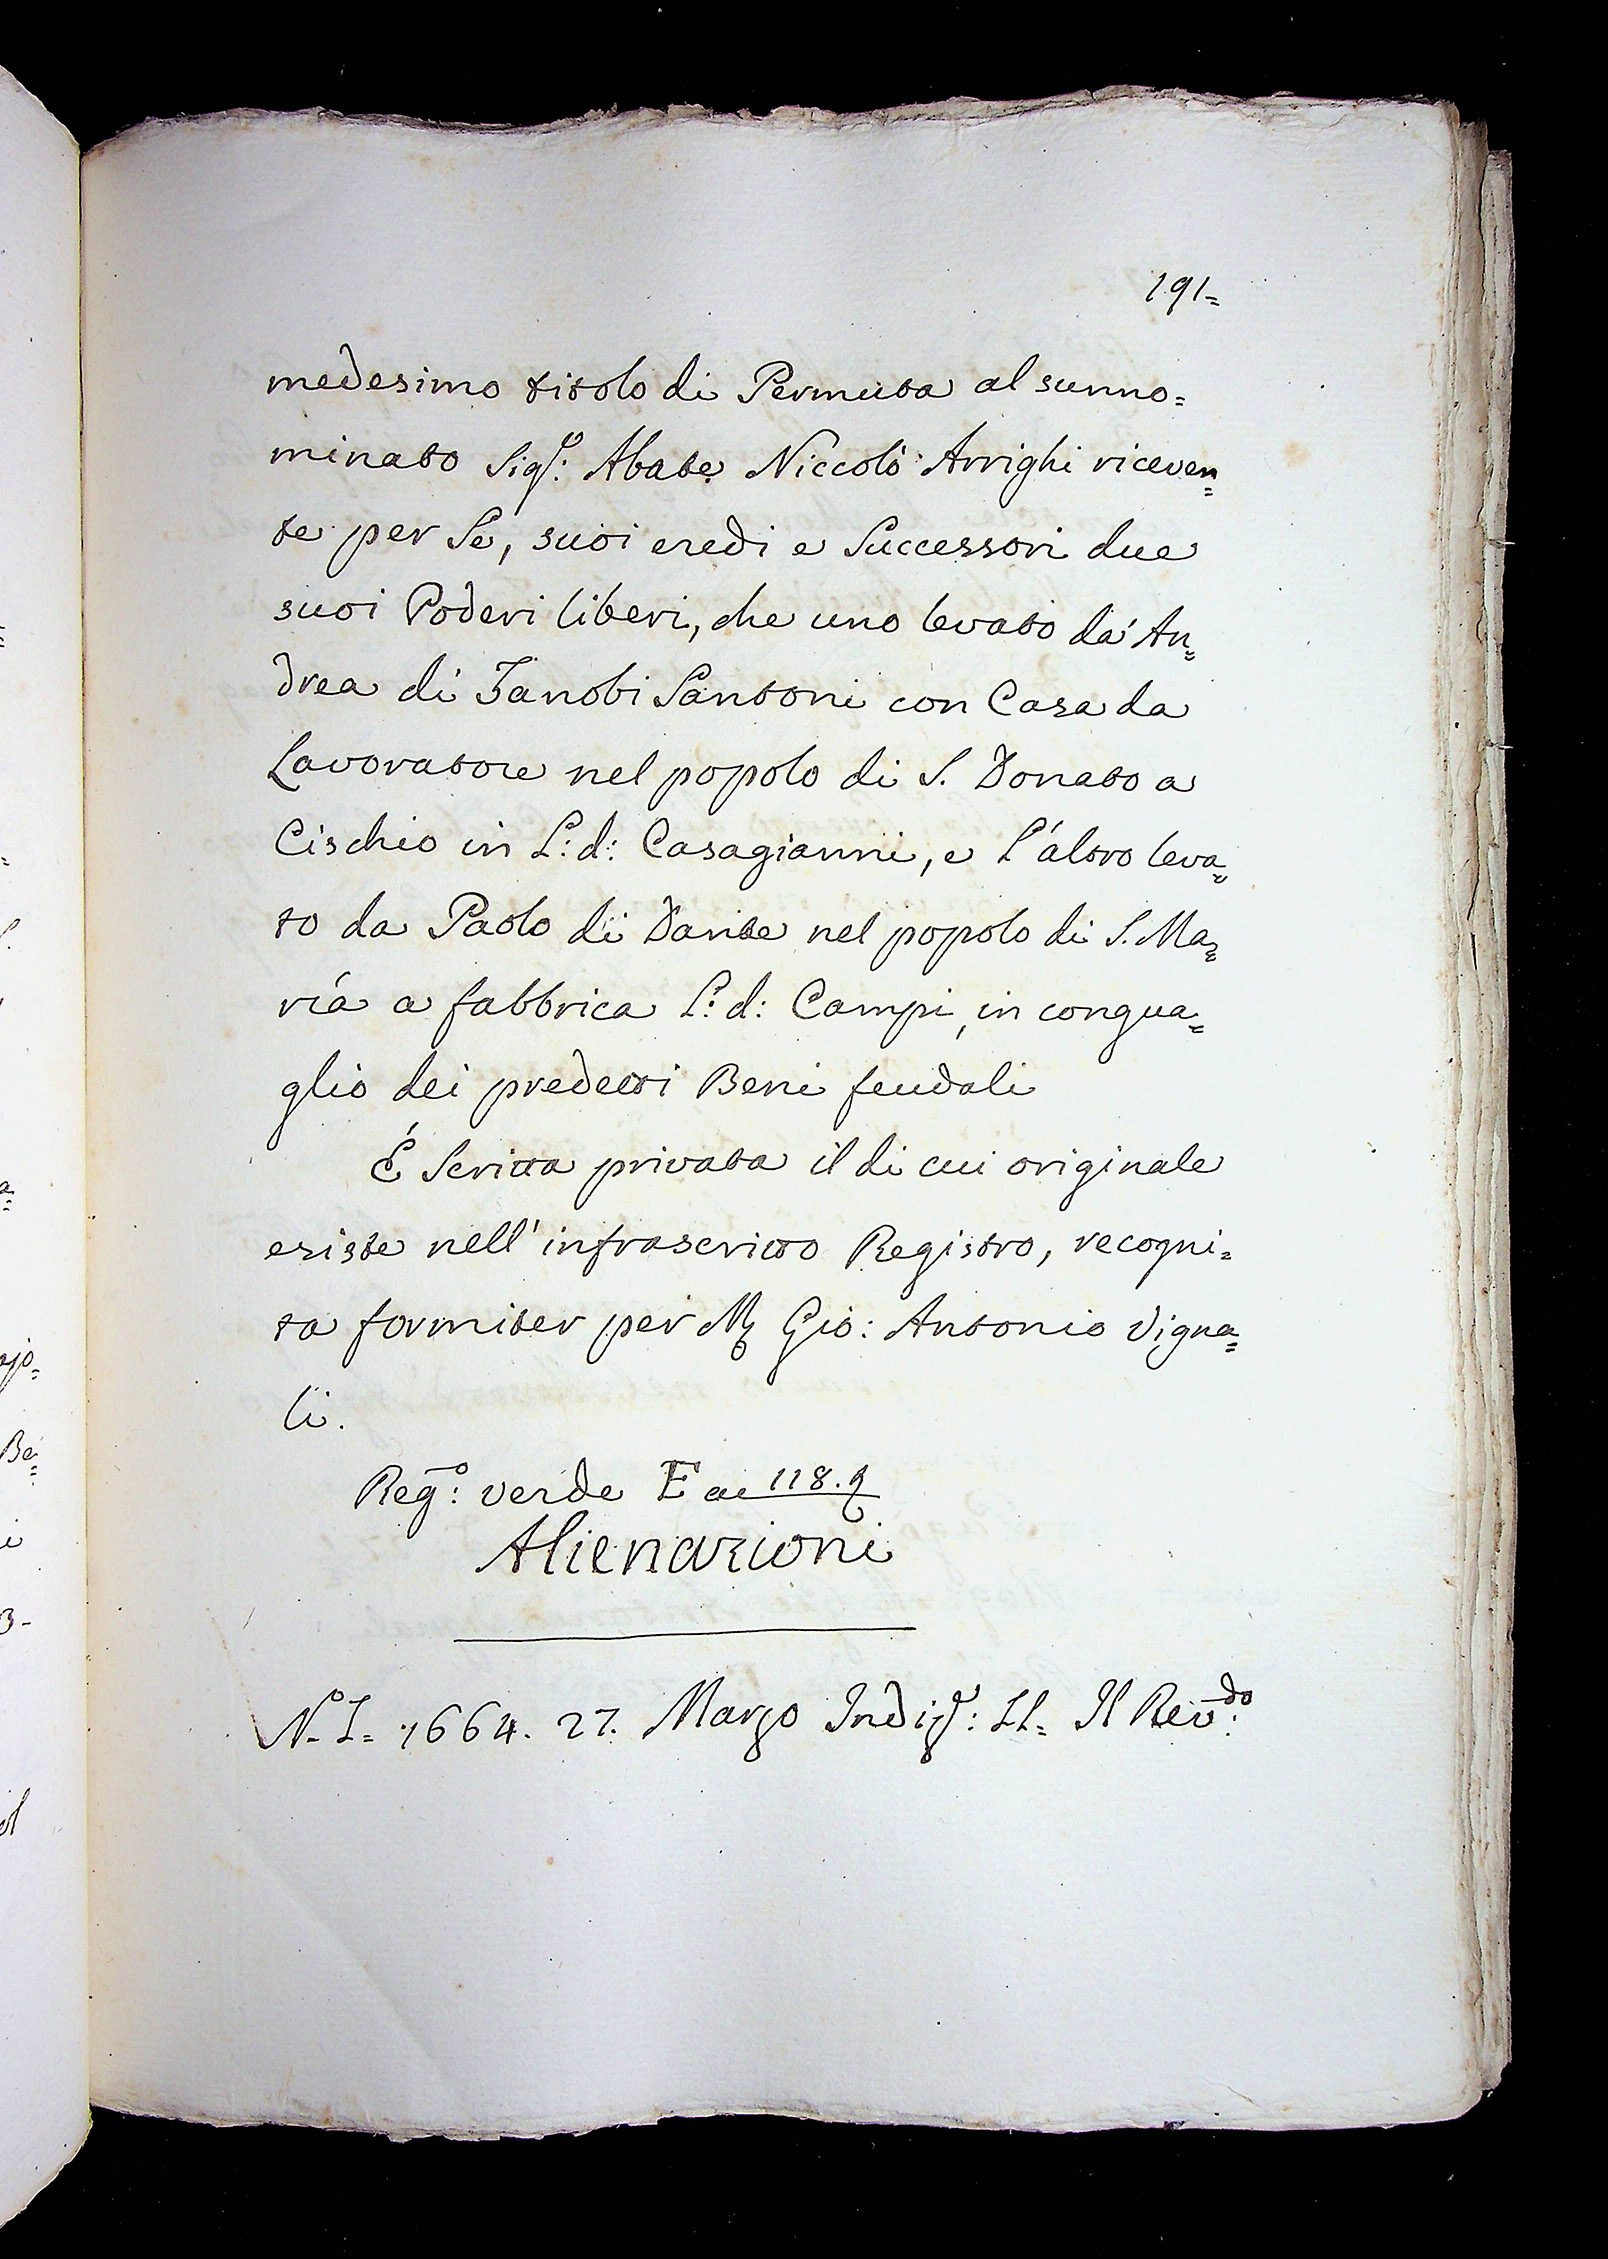 191=
medesimo titolo di Permuta al sunno=
minato Sig:e Abate Niccolò Arrighi riceven=
te per Se, suoi eredi e Successori due
suoi Poderi liberi, che uno levato da' An=
drea di Zanobi Santoni con Casa da
Lavoratore nel popolo di S. Donato a
Cischio in L: d: Casagianni, e L'altro leva=
to da Paolo di Dante nel popolo di S. Ma=
ría a fabbrica L: d: Campi, in congua=
glio dei predetti Beni feudali
É Scritta privata il di cui originale
esiste nell' infrascritto Registro, recogni=
ta formiter per Gio: Antonio Vigna=
li.
Reg:o verde E a 118.
Alienazioni
N. I= 1664. 27. Marzo Indi: II= Il Rev:do